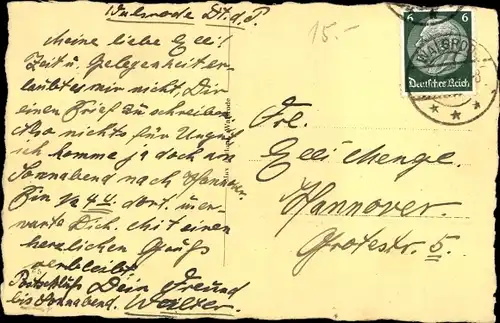 Walsrode Dt. d. P.
15.-
Meine liebe Elli!
Zeit u. Gelegenheit er-
laubt es mir nicht, Dir
einen Brief zu schreiben
Also nichts für Ungut
ich komme ja doch am
Sonnabend nach Hannover.
Bin 1/2 4 U. dort. u. er-
warte Dich. Mit einen
herzlichen Gruß
verbleibt
Dein Freund
Walter.
Postschluß
bis Sonnabend.
6 6
Deutsches Reich
WALSRODE
Frl.
Elli Mengel.
Hannover.
Grotestr. 5.